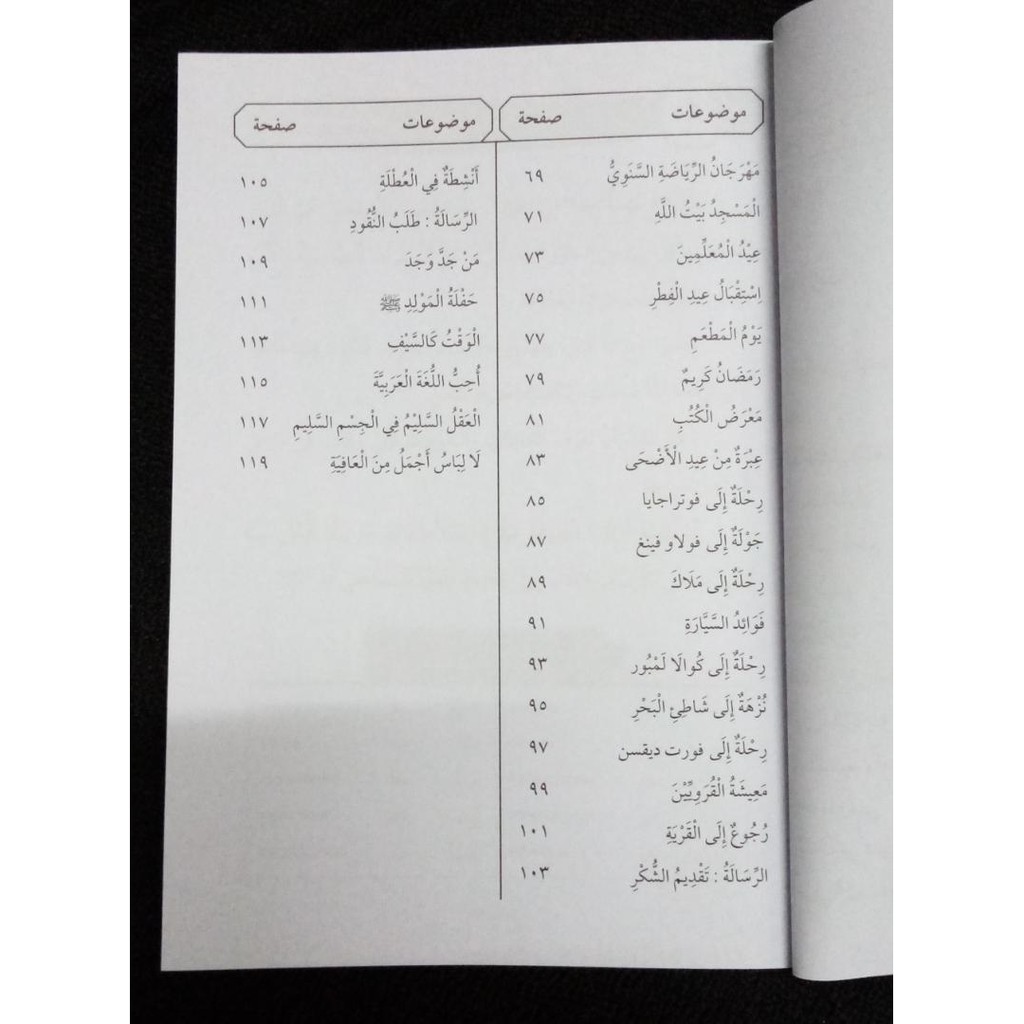 موضوعات صفحة
مَهْرَجَانُ الرِّيَاضَةِ السَّنَوِيُّ ٦٩
الْمَسْجِدُ بَيْتُ اللَّهِ ٧١
عِيْدُ الْمُعَلِّمِينَ ٧٣
اِسْتِقْبَالُ عِيدِ الْفِطْرِ ٧٥
يَوْمُ الْمَطْعَمِ ٧٧
رَمَضَانُ كَرِيمٌ ٧٩
مَعْرَضُ الْكُتُبِ ٨١
عِبْرَةٌ مِنْ عِيدِ الْأَضْحَى ٨٣
رِحْلَةٌ إِلَى فوتراجايا ٨٥
جَوْلَةٌ إِلَى فولاو فينغ ٨٧
رِحْلَةٌ إِلَى مَلَاكَ ٨٩
فَوَائِدُ السَّيَّارَةِ ٩١
رِحْلَةٌ إِلَى كُوالَا لَمْبُور ٩٣
نُزْهَةٌ إِلَى شَاطِئِ الْبَحْرِ ٩٥
رِحْلَةٌ إِلَى فورت ديقسن ٩٧
مَعِيشَةُ الْقُرَوِيِّيْنَ ٩٩
رُجُوعٌ إِلَى الْقَرْيَةِ ١٠١
الرِّسَالَةُ : تَقْدِيمُ الشُّكْرِ ١٠٣
موضوعات صفحة
أَنْشِطَةٌ فِي الْعُطْلَةِ ١٠٥
الرِّسَالَةُ : طَلَبُ النُّقُودِ ١٠٧
مَنْ جَدَّ وَجَدَ ١٠٩
حَفْلَةُ الْمَوْلِدِ ﷺ ١١١
الْوَقْتُ كَالسَّيْفِ ١١٣
أُحِبُّ اللُّغَةَ الْعَرَبِيَّةَ ١١٥
الْعَقْلُ السَّلِيْمُ فِي الْجِسْمِ السَّلِيمِ ١١٧
لَا لِبَاسُ أَجْمَلُ مِنَ الْعَافِيَةِ ١١٩